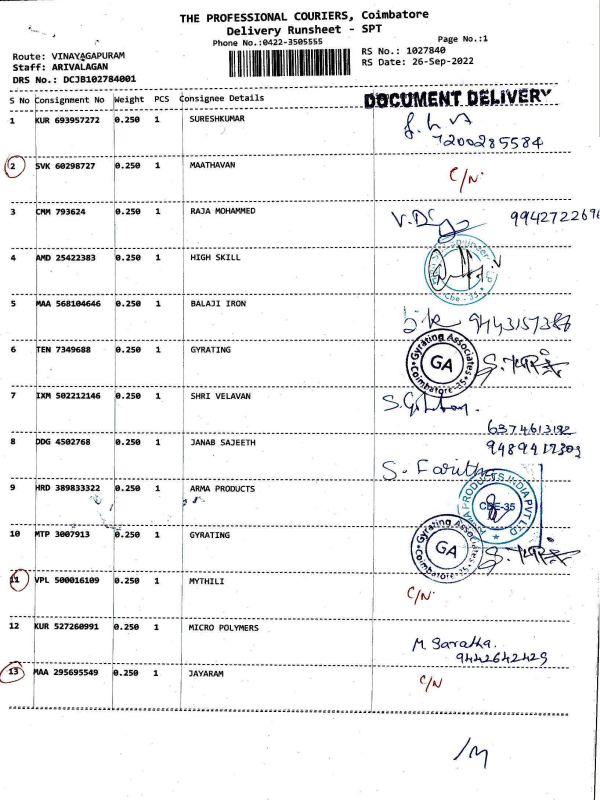 THE PROFESSIONAL COURIERS, Coimbatore
Delivery Runsheet - SPT
Phone No.:0422-3505555
Page No.:1
Route: VINAYAGAPURAM
RS No.: 1027840
Staff: ARIVALAGAN
RS Date: 26-Sep-2022
DRS No.: DCJB102784001
S No Consignment No Weight PCS Consignee Details
DOCUMENT DELIVERY
1 KUR 693957272 0.250 1 SURESHKUMAR
7200285584
2 SVK 60298727 0.250 1 MAATHAVAN C/N.
3 CMM 793624 0.250 1 RAJA MOHAMMED
9942722696
4 AMD 25422383 0.250 1 HIGH SKILL
Cbe - 35
5 MAA 568104646 0.250 1 BALAJI IRON
6 TEN 7349688 0.250 1 GYRATING
Gyrating Associates
GA
Coimbatore-35
7 IXM 502212146 0.250 1 SHRI VELAVAN
6374613182
8 DDG 4502768 0.250 1 JANAB SAJEETH
9489417303
S. Faritha
9 HRD 389833322 0.250 1 ARMA PRODUCTS
ARMA PRODUCTS INDIA PVT LTD
CBE-35
10 MTP 3007913 0.250 1 GYRATING
Gyrating Associates
GA
Coimbatore-35
11 VPL 500016109 0.250 1 MYTHILI C/N.
12 KUR 527260991 0.250 1 MICRO POLYMERS
M. Saratha
9442642429
13 MAA 295695549 0.250 1 JAYARAM C/N